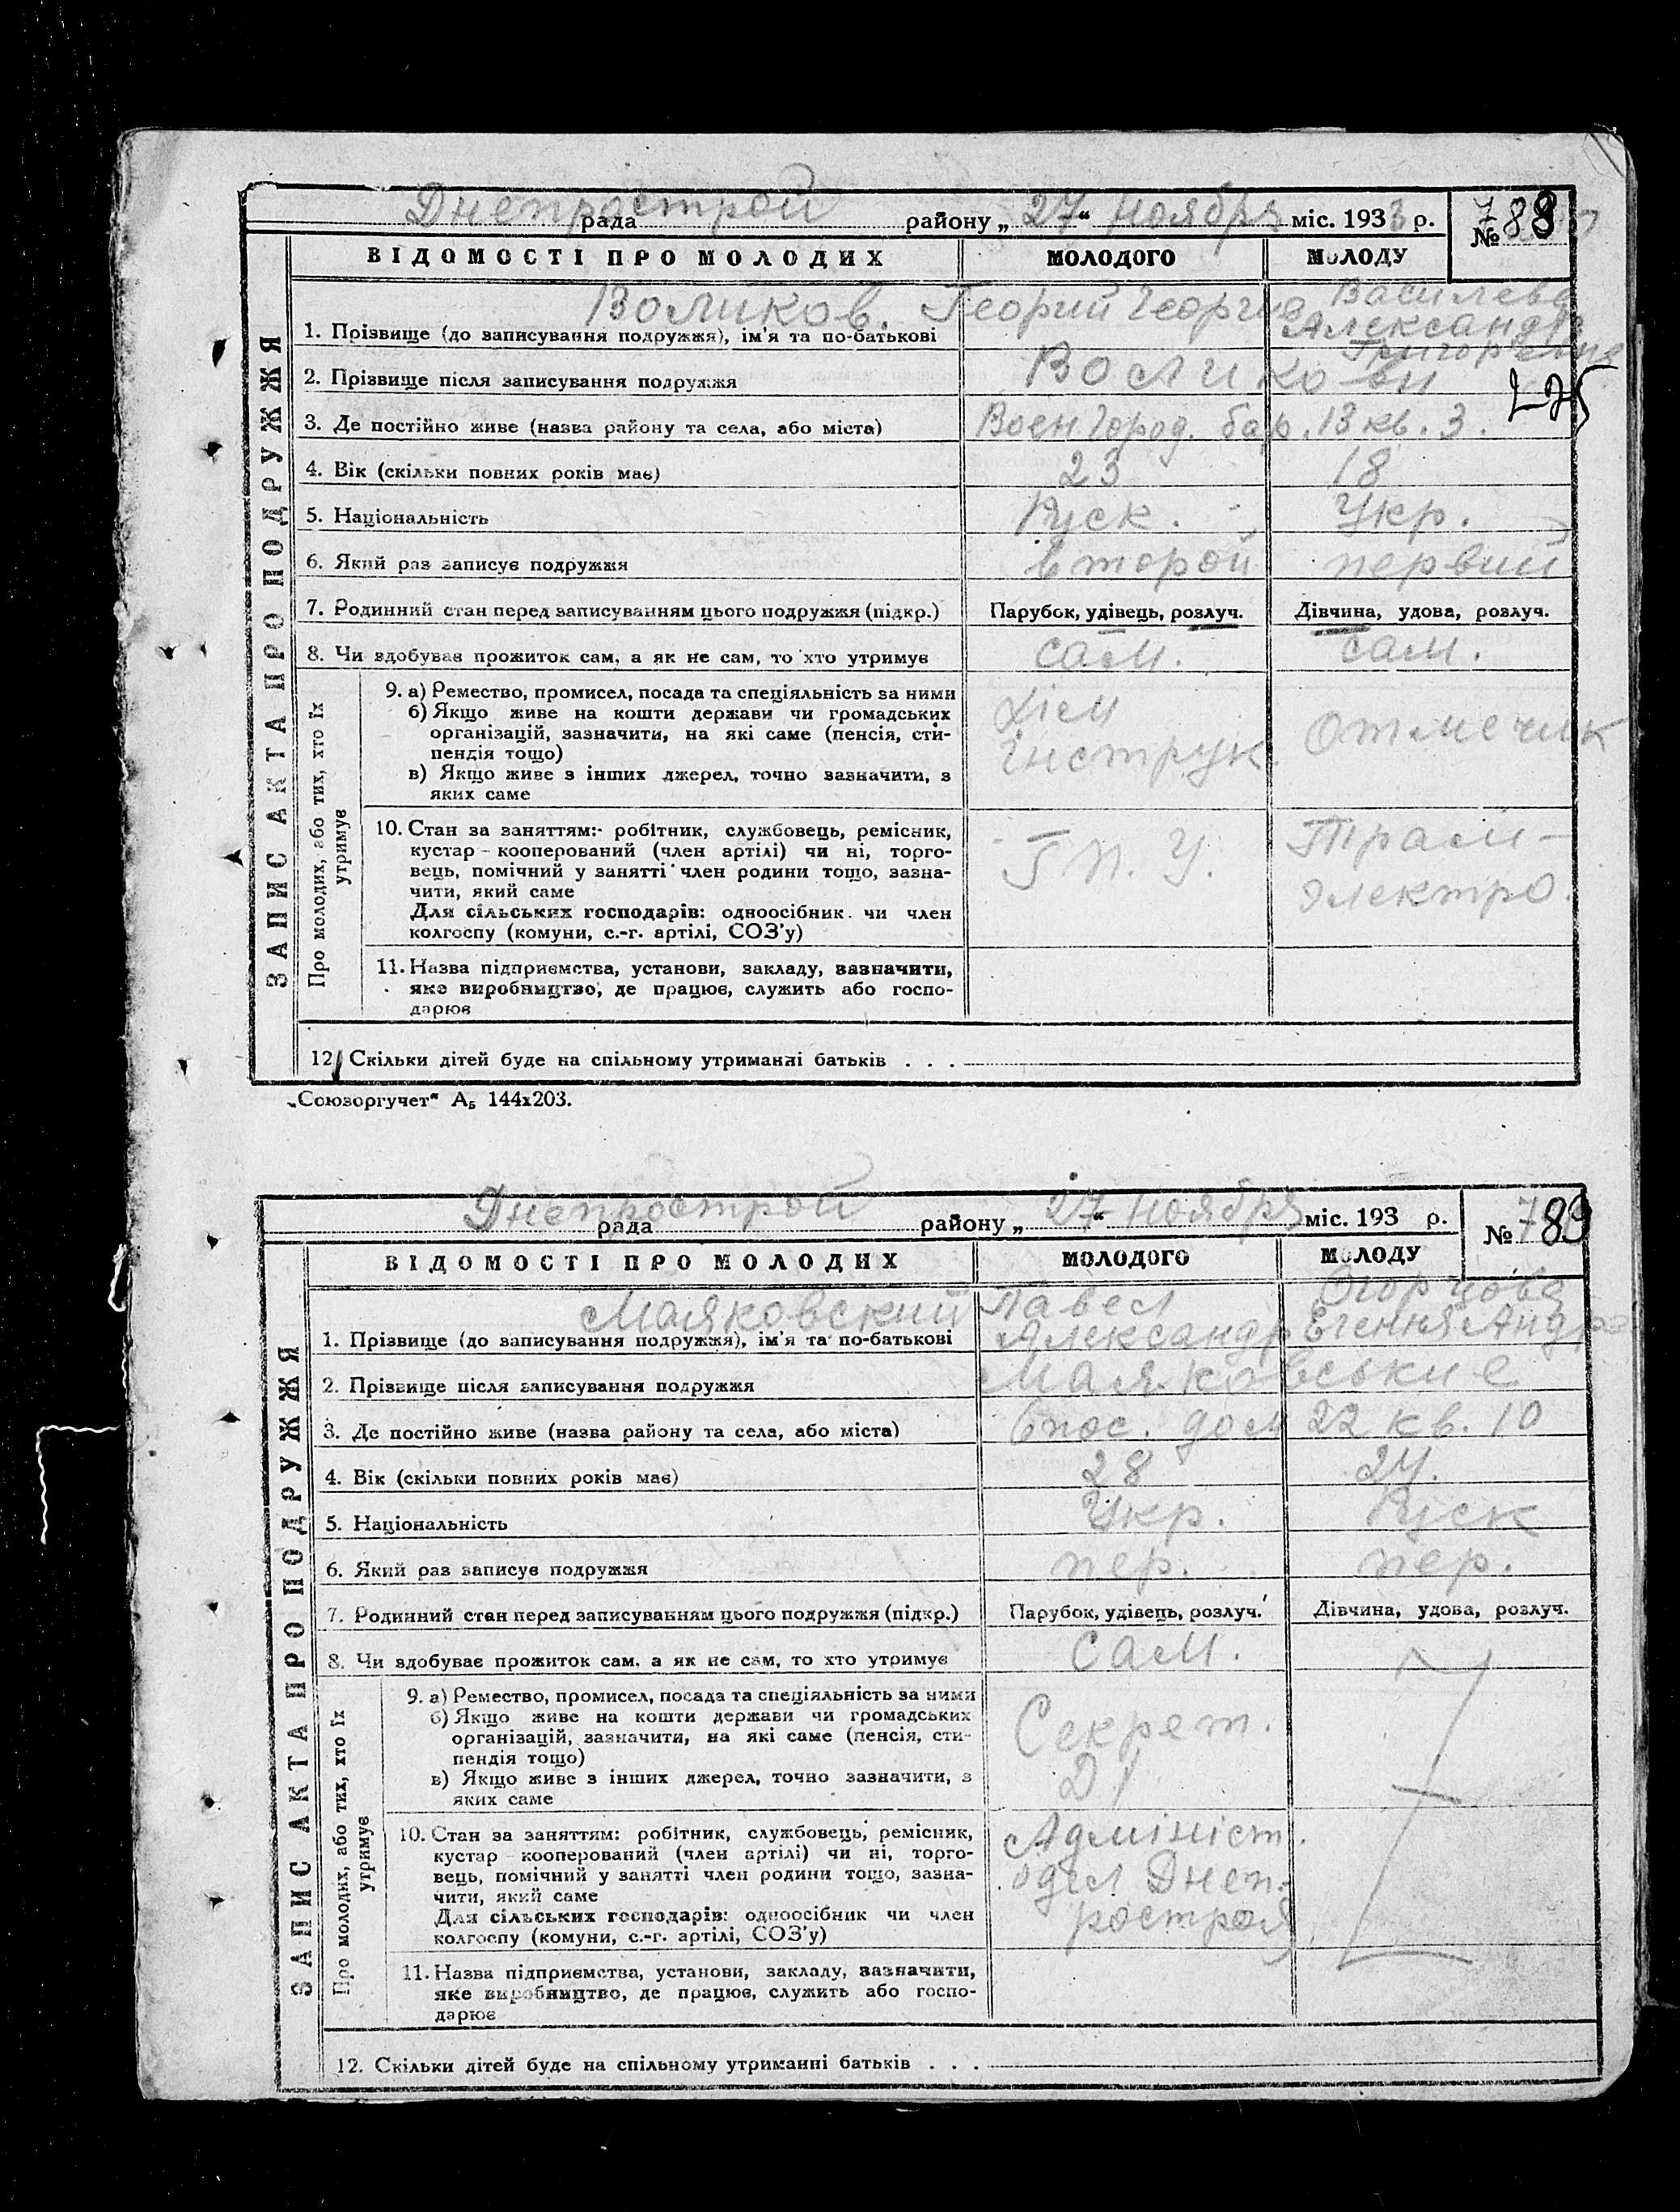 Днепрострой
рада району „ 27 “ ноября міс. 1933 р. № 788
ВІДОМОСТІ ПРО МОЛОДИХ МОЛОДОГО МОЛОДУ
ЗАПИС АКТА ПРО ПОДРУЖЖЯ
Воликов. Георгий Георгие Василева
Александр
Григорьевне
1. Прізвище (до записування подружжя), ім'я та по-батькові
2. Прізвище після записування подружжя Воликови
3. Де постійно живе (назва району та села, або міста) Воен город. бар. 13 кв. 3.
4. Вік (скільки повних років має) 23 18
5. Національність Руск. Укр.
6. Який раз записує подружжя второй первий
7. Родинний стан перед записуванням цього подружжя (підкр.) Парубок, удівець, розлуч. Дівчина, удова, розлуч.
8. Чи здобував прожиток сам, а як не сам, то хто утримує сам. сам.
Про молодих, або тих, хто їх утримує
9. а) Ремество, промисел, посада та спеціяльність за ними
б) Якщо живе на кошти держави чи громадських
організацій, зазначити, на які саме (пенсія, сти-
пендія тощо)
в) Якщо живе з інших джерел, точно зазначити, з
яких саме
Хім
інструк. Отмечик
10. Стан за заняттям:- робітник, службовець, ремісник,
кустар - кооперований (член артілі) чи ні, торго-
вець, помічний у занятті член родини тощо, зазна-
чити, який саме
Для сільських господарів: одноосібник чи член
колгоспу (комуни, с.-г. артілі, СОЗ'у)
Г. П. У. Трам-
электро.
11. Назва підприємства, установи, закладу, зазначити,
яке виробництво, де працює, служить або госпо-
дарює
12. Скільки дітей буде на спільному утриманні батьків . . .
„Союзоргучет“ А₅ 144х203.
Днепрострой
рада району „ 27 “ ноября міс. 193 р. № 789
ВІДОМОСТІ ПРО МОЛОДИХ МОЛОДОГО МОЛОДУ
ЗАПИС АКТА ПРО ПОДРУЖЖЯ
Маяковский Павел Огорцова
1. Прізвище (до записування подружжя), ім'я та по-батькові Александр Егения Андре
2. Прізвище після записування подружжя Маяковськие
3. Де постійно живе (назва району та села, або міста) 6 пос. дом 22 кв. 10
4. Вік (скільки повних років має) 28 24.
5. Національність Укр. Руск
6. Який раз записує подружжя пер. пер.
7. Родинний стан перед записуванням цього подружжя (підкр.) Парубок, удівець, розлуч. Дівчина, удова, розлуч.
8. Чи здобуває прожиток сам, а як не сам, то хто утримує сам.
Про молодих, або тих, хто їх утримує
9. а) Ремество, промисел, посада та спеціяльність за ними
б) Якщо живе на кошти держави чи громадських
організацій, зазначити, на які саме (пенсія, сти-
пендія тощо)
в) Якщо живе з інших джерел, точно зазначити, з
яких саме
Секрет.
10. Стан за заняттям: робітник, службовець, ремісник,
кустар кооперований (член артілі) чи ні, торго-
вець, помічний у занятті член родини тощо, зазна-
чити, який саме
Для сільських господарів: одноосібник чи член
колгоспу (комуни, с.-г. артілі, СОЗ'у)
Адмініст.
одел Днеп-
ростроя
11. Назва підприємства, установи, закладу, зазначити,
яке виробництво, де працює, служить або госпо-
дарює
12. Скільки дітей буде на спільному утриманні батьків . . .